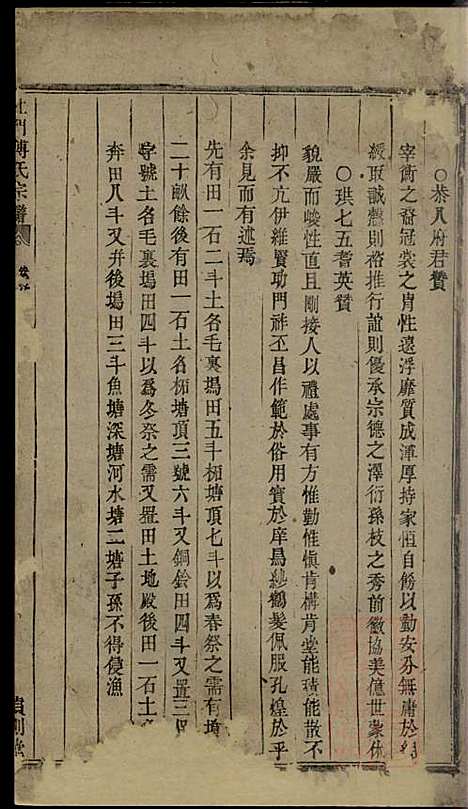 ○恭八府君贊
宰衡之裔冠裳之胄性遠浮靡質成渾厚持家恒自飭以勤安分無庸於
綬取誠慤則裕推行誼則優承宗德之澤衍孫枝之秀前徽協美億世蒙休
○珙七五耆英贊
貌嚴而峻性直且剛接人以禮處事有方惟勤惟愼肯構肯堂能積能散不
抑不亢伊維賢功門祚丕昌作範於俗用賓於庠鳥紗鶴髮佩服孔煌於乎
余見而有述焉
先有田一石二斗土名毛裏塢田五斗栢塘頂七斗以爲春祭之需有
二十畝餘後有田一石土名栢塘頂二號六斗又銅鈴田四斗又置三
字號土名毛裏塢田四斗以爲冬祭之需又置田土地殿後田一石土
奔田八斗又并後塢田三斗魚塘深塘河水塘二塘子孫不得侵漁
門傅氏宗譜